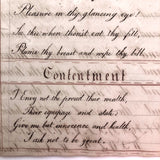 Pleasure in thy glancing eye?
So this when thou'st eat thy fill,
Plume thy breast and wipe thy bill.
Contentment
I Envy not the proud their wealth,
Their equipage and state;
Give me but innocence and health,
I ask not to be great.